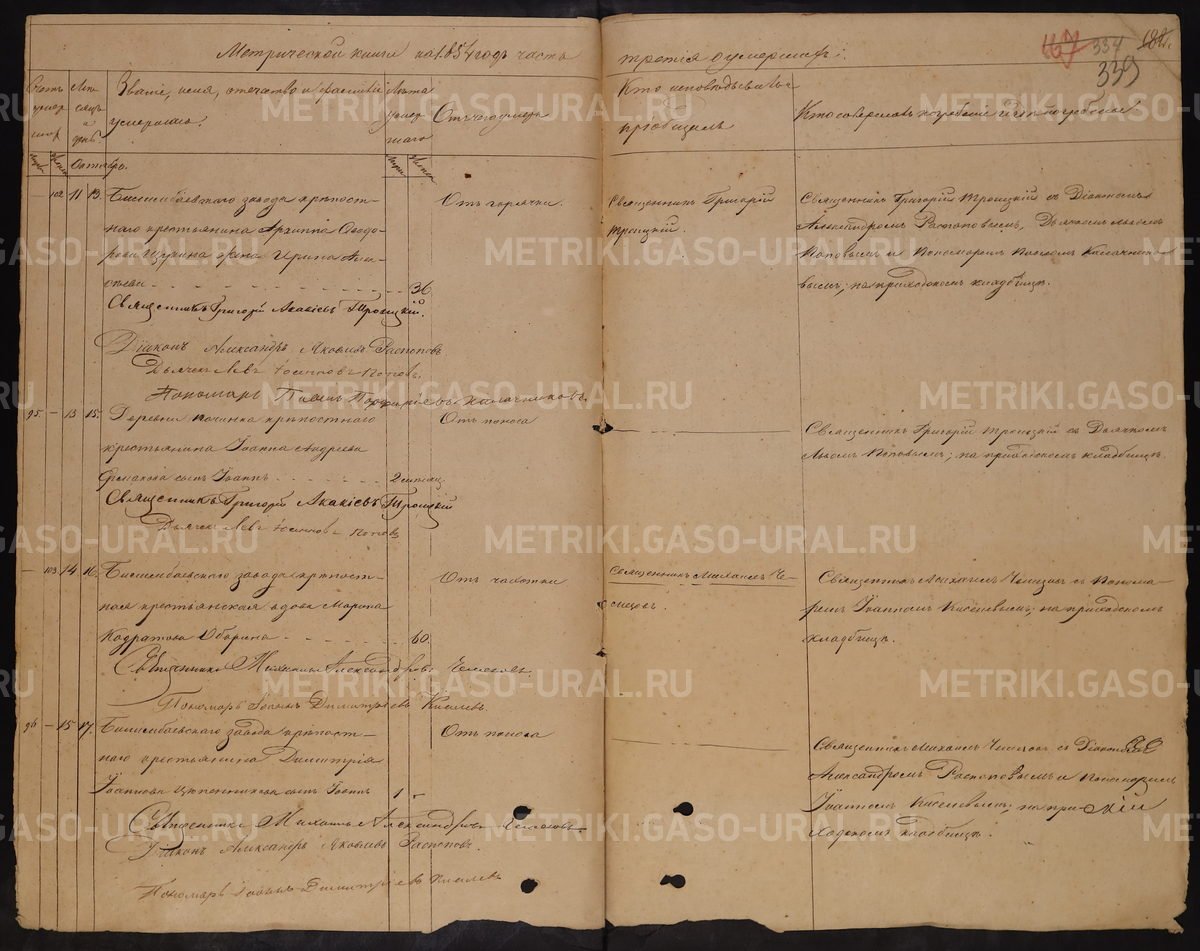 Метрической книги на 1854 годъ часть
третія о умершихъ:
167 334 339
Счетъ умершихъ
Мѣсяцъ и день.
Званіе, имя, отечество и фамилія умершаго.
Лѣта умершаго
Отъ чего умеръ
Кто исповѣдывалъ и пріобщалъ
Кто совершалъ погребеніе и гдѣ погребены
Октябрь.
— 102 11 13. Билимбаевскаго завода крѣпост-
наго крестьянина Архиппа Ѳеодо-
рова Щукина жена Ирина
36.
Отъ горячки.
Священникъ Григорій
Троицкій.
Священникъ Григорій Троицкій съ Діакономъ
Александромъ Распоповымъ, Дьячкомъ Львомъ
Поповымъ и Пономаремъ Павломъ Калачнико-
вымъ; на приходскомъ кладбищѣ.
Священникъ Григорій Акакіевъ Троицкій.
Діаконъ Александръ Яковлевъ Распоповъ.
Дьячекъ Левъ Іоанновъ Поповъ.
Пономарь Павелъ Порфирьевъ Калачниковъ.
95 — 13 15. Деревни Починка крѣпостнаго
крестьянина Іоанна Андреева
сынъ Іоаннъ
Отъ поноса
Священникъ Григорій Троицкій съ Дьячкомъ
Львомъ Поповымъ; на приходскомъ кладбищѣ.
Священникъ Григорій Акакіевъ Троицкій
Дьячекъ Левъ Іоанновъ Поповъ
— 103 14 16. Билимбаевскаго завода крѣпост-
ная крестьянская вдова Марина
Кодратова Оборина
60.
Отъ чахотки
Священникъ Михаилъ
Священникъ Михаилъ съ Понома-
ремъ Іоанномъ Киселевымъ; на приходскомъ
кладбищѣ.
Священникъ Михаилъ Александровъ
Пономарь Іоаннъ Димитріевъ Киселевъ.
96 — 15 17. Билимбаевскаго завода крѣпост-
наго крестьянина Димитрія
Іоаннова сынъ Іоаннъ
1
Отъ поноса
Священникъ Михаилъ съ Діакономъ
Александромъ Распоповымъ и Пономаремъ
Іоанномъ Киселевымъ; на при-
ходскомъ кладбищѣ.
Священникъ Михаилъ Александровъ
Діаконъ Александръ Яковлевъ Распоповъ.
Пономарь Іоаннъ Димитріевъ Киселевъ
METRIKI.GASO-URAL.RU